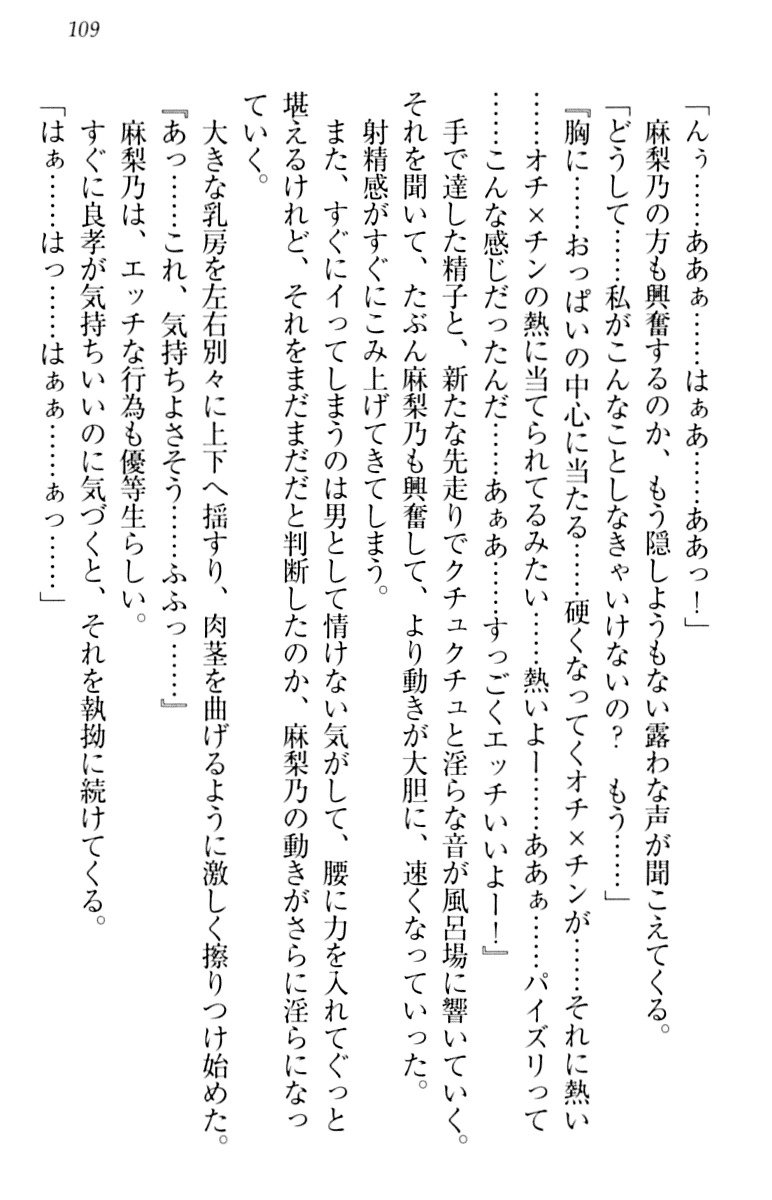 109
「んぅ……ああぁ……はぁあ……ああっ！」
麻梨乃の方も興奮するのか、もう隠しようもない露わな声が聞こえてくる。
「どうして……私がこんなことしなきゃいけないの？　もう……」
『胸に……おっぱいの中心に当たる……硬くなってくオチ×チンが……それに熱い
……オチ×チンの熱に当てられてるみたい……熱いよー……ああぁ……パイズリって
……こんな感じだったんだ……あぁあ……すっごくエッチいいよー！』
手で達した精子と、新たな先走りでクチュクチュと淫らな音が風呂場に響いていく。
それを聞いて、たぶん麻梨乃も興奮して、より動きが大胆に、速くなっていった。
射精感がすぐにこみ上げてきてしまう。
また、すぐにイってしまうのは男として情けない気がして、腰に力を入れてぐっと
堪えるけれど、それをまだまだだと判断したのか、麻梨乃の動きがさらに淫らになっ
ていく。
大きな乳房を左右別々に上下へ揺すり、肉茎を曲げるように激しく擦りつけ始めた。
『あっ……これ、気持ちよさそう……ふふっ……』
麻梨乃は、エッチな行為も優等生らしい。
すぐに良孝が気持ちいいのに気づくと、それを執拗に続けてくる。
「はぁ……はっ……はぁぁ……ぁっ……」